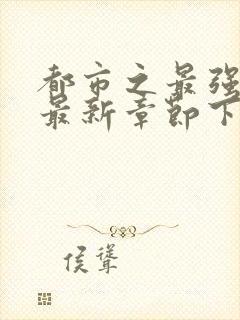 都市之最强
最新章节下
侯聳